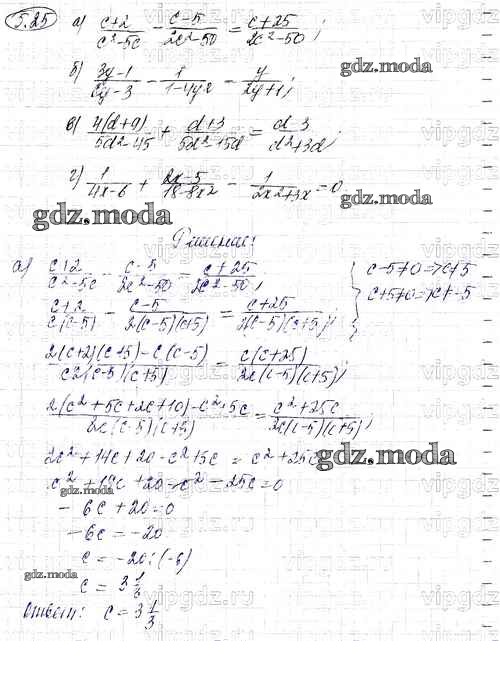 5.25 а) (c+2)/(c²-5c) - (c-5)/(2c²-50) = (c+25)/(2c²-50);
б) (3y-1)/(2y-3) - 1/(1-4y²) - y/(2y+1);
gdz.moda
в) 4(d+9)/(5d²-45) + (d+3)/(5d²+5d) = (d-3)/(d²+3d);
г) 1/(4x-6) + (2x-5)/(18-8x²) - 1/(2x²+3x) = 0
gdz.moda
gdz.moda
Решение:
а) (c+2)/(c²-5c) - (c-5)/(2c²-50) = (c+25)/(2c²-50); c-5≠0 = 7c≠5
(c+2)/(c(c-5)) - (c-5)/(2(c-5)(c+5)) = (c+25)/(2(c-5)(c+5)); c+5≠0 = 7c≠-5
(2(c+2)(c+5)-c(c-5))/(c2(c-5)(c+5)) = (c(c+25))/(2c(c-5)(c+5));
(2(c²+5c+2c+10)-c²+5c)/(2c(c-5)(c+5)) = (c²+25c)/(2c(c-5)(c+5));
2c²+14c+20-c²+5c = c²+25c
gdz.moda
c²+19c+20-c²-25c=0
gdz.moda
-6c+20=0
-6c=-20
c=-20:(-6)
gdz.moda
c=3 1/3
Ответ: c=3 1/3
gdz.moda